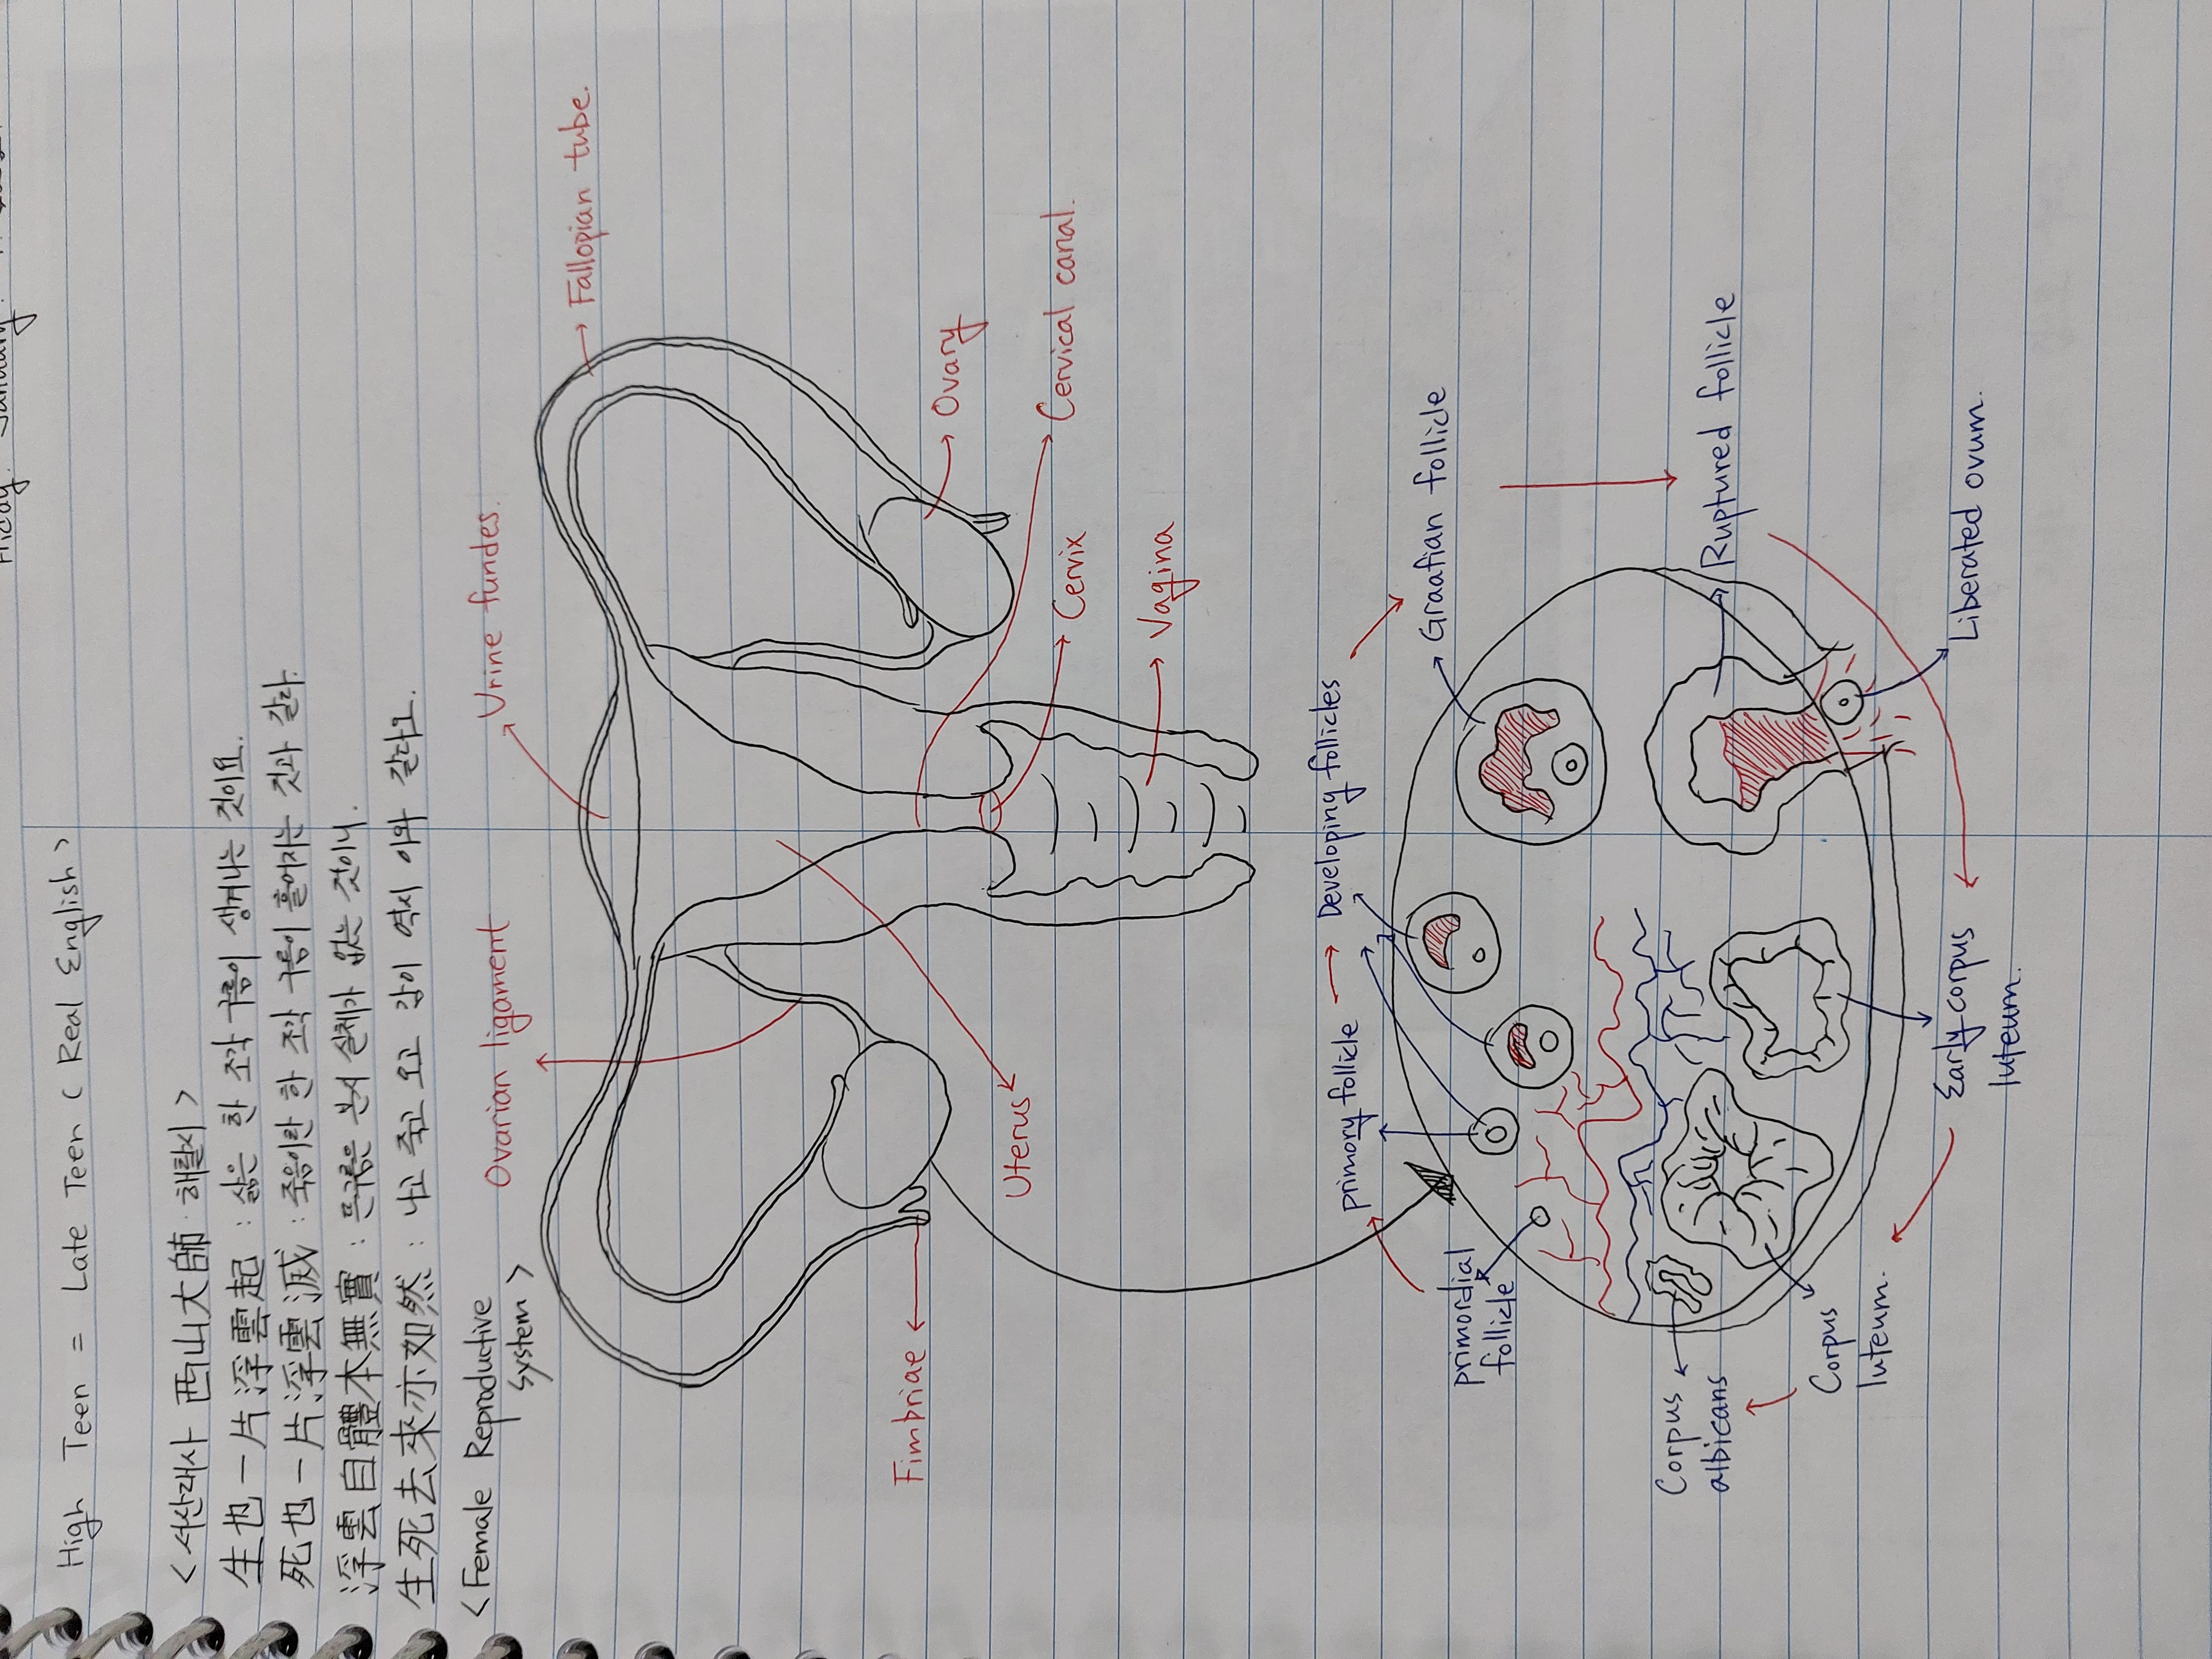 High Teen = Late Teen ( Real English )
< 서산대사 西山大師 : 해탈시 >
生也一片浮雲起 : 삶은 한 조각 구름이 생겨나는 것이요.
死也一片浮雲滅 : 죽음이란 한 조각 구름이 흩어지는 것과 같다.
浮雲自體本無實 : 뜬구름은 본시 실체가 없는 것이니.
生死去來亦如然 : 나고 죽고 오고 감이 역시 이와 같다고.
< Female Reproductive
system >
Ovarian ligament
Urine fundes.
Fallopian tube.
Fimbriae
Uterus
Ovary
Cervical canal.
Cervix
Vagina
primordial
follicle
primary follicle
Developing follicles
Graafian follicle
Ruptured follicle
Liberated ovum.
Early corpus
luteum.
Corpus
luteum.
Corpus
albicans